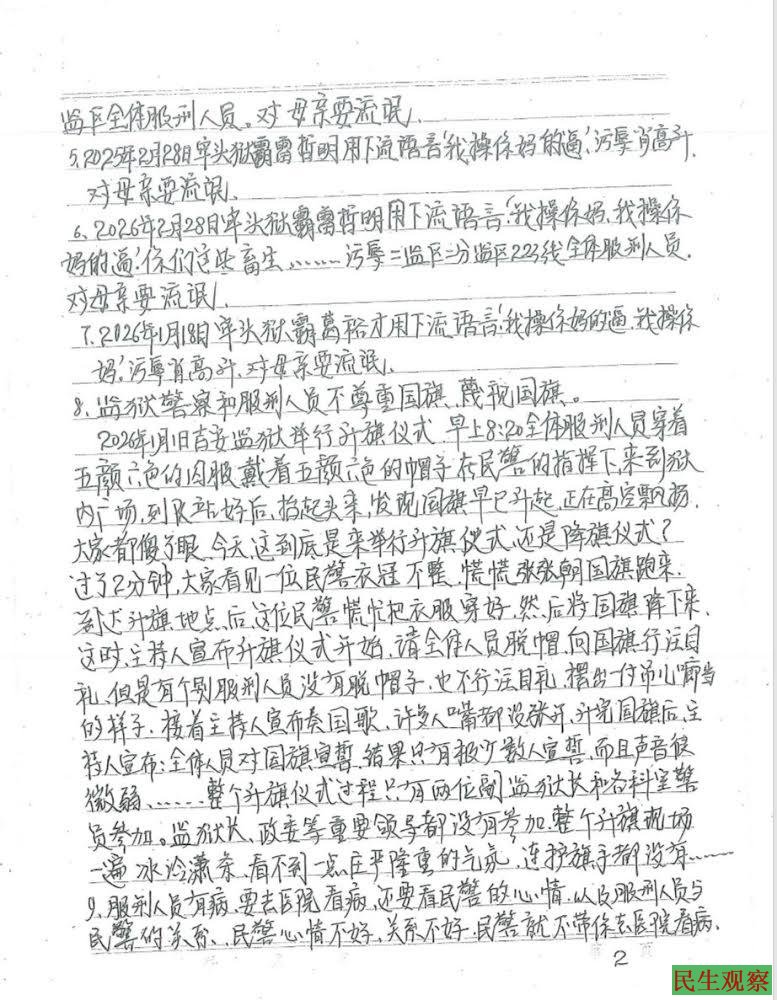 监区全体服刑人员。对母亲耍流氓!
5、2025年2月28日牢头狱霸雷哲明用下流语言"我操你妈的逼"!污辱肖高升,
对母亲耍流氓!
6、2026年2月28日牢头狱霸雷哲明用下流语言:"我操你妈,我操你
妈的逼!你们这些畜生……污辱二监区二分监区223线全体服刑人员.
对母亲耍流氓!
7.2026年1月18日牢头狱霸葛裕才用下流语言"我操你妈的逼,我操你
妈"污辱肖高升,对母亲耍流氓!
8、监狱警察和服刑人员不尊重国旗、蔑视国旗。
2026年1月1日吉安监狱举行升旗仪式,早上8:20全体服刑人员穿着
五颜六色的囚服戴着五颜六色的帽子在民警的指挥下来到狱
内广场,列队站好后,抬起头来,发现国旗早已升起,正在高空飘扬.
大家都傻了眼,今天,这到底是来举行升旗仪式,还是降旗仪式?
过了2分钟,大家看见一位民警衣冠不整,慌慌张张朝国旗跑来.
到达升旗地点后,这位民警慌忙把衣服穿好,然后将国旗降下来.
这时,主持人宣布升旗仪式开始,请全体人员脱帽,向国旗行注目
礼,但是有个别服刑人员没有脱帽子,也不行注目礼,摆出一付吊儿啷当
的样子,接着主持人宣布奏国歌,许多人嘴都没张开,升完国旗后,主
持人宣布:全体人员对国旗宣誓,结果只有极少数人宣誓,而且声音很
微弱,……整个升旗仪式过程只有两位副监狱长和各科室警
员参加。监狱长、政委等重要领导都没有参加.整个升旗现场
一遍冰冷萧条,看不到一点庄严隆重的气氛,连护旗手都没有……
9、服刑人员有病,要去医院看病,还要看民警的心情,以及服刑人员与
民警的关系、民警心情不好,关系不好,民警就不带你去医院看病,
2
民生观察